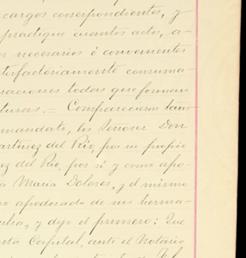 cargos correspondientes, y
practique cuantos actos, a-
necesarios ó convenientes
satisfactoriamente consuma-
raciones todas que forman
turas. = Comparecieron tam-
mandato, los Señores Don
artinez del Rio, por su propio
ez del Rio, por sí y como apo-
a Maria Dolores, y el mismo
apoderado de sus herma-
y dijo el primero: Que
esta Capital, ante el Notario